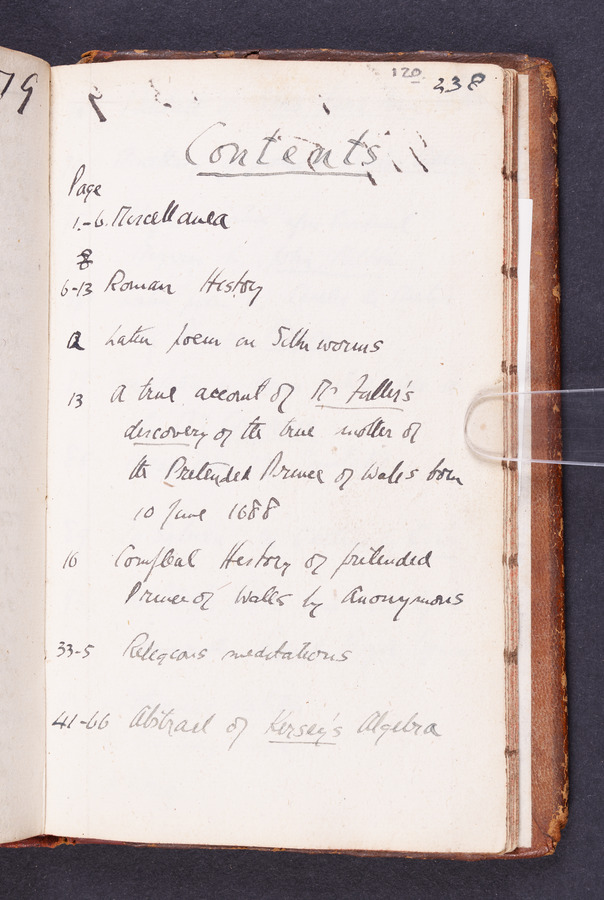 79
120 238
Contents
Page
1-6. Miscellanea
8
6-13 Roman History
Latin poem on Silk worms
13 A true account of Mr Fuller's
discovery of the true mother of
the Pretended Prince of Wales born
10 June 1688
16 Compleat History of pretended
Prince of Wales by Anonymous
33-5 Religious meditations
41-66 Abstract of Kersey's Algebra